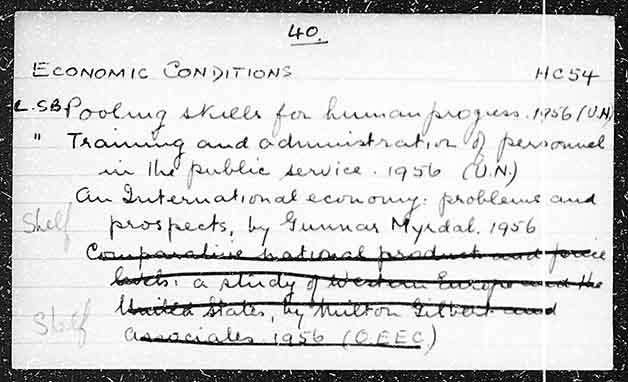 40.
ECONOMIC CONDITIONS HC54
L.SB Pooling skills for human progress. 1956 (U.N)
" Training and administration of personnel
in the public service. 1956 (U.N.)
An International economy: problems and
Shelf prospects, by Gunnar Myrdal. 1956
Comparative national products and price
levels: a study of Western Europe and the
Shelf United States, by Milton Gilbert and
associates. 1956 (O.E.E.C.)